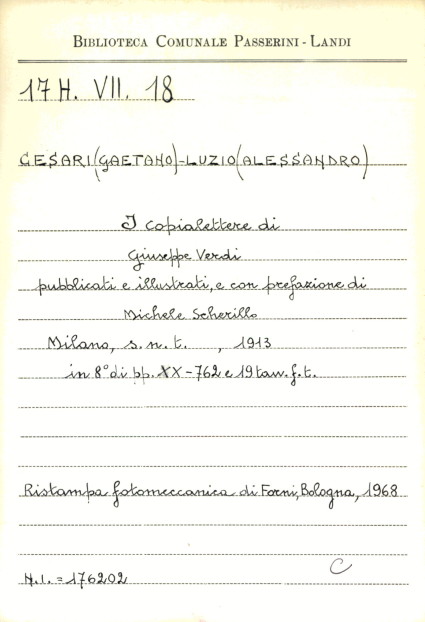 BIBLIOTECA COMUNALE PASSERINI - LANDI
17 H. VII. 18
CESARI (GAETANO) - LUZIO (ALESSANDRO)
I copialettere di
Giuseppe Verdi
pubblicati e illustrati, e con prefazione di
Michele Scherillo
Milano, s. n. t. , 1913
in 8° di pp. XX - 762 e 19 tav. f. t.
Ristampa fotomeccanica di Forni, Bologna, 1968
C
N. I. = 176202